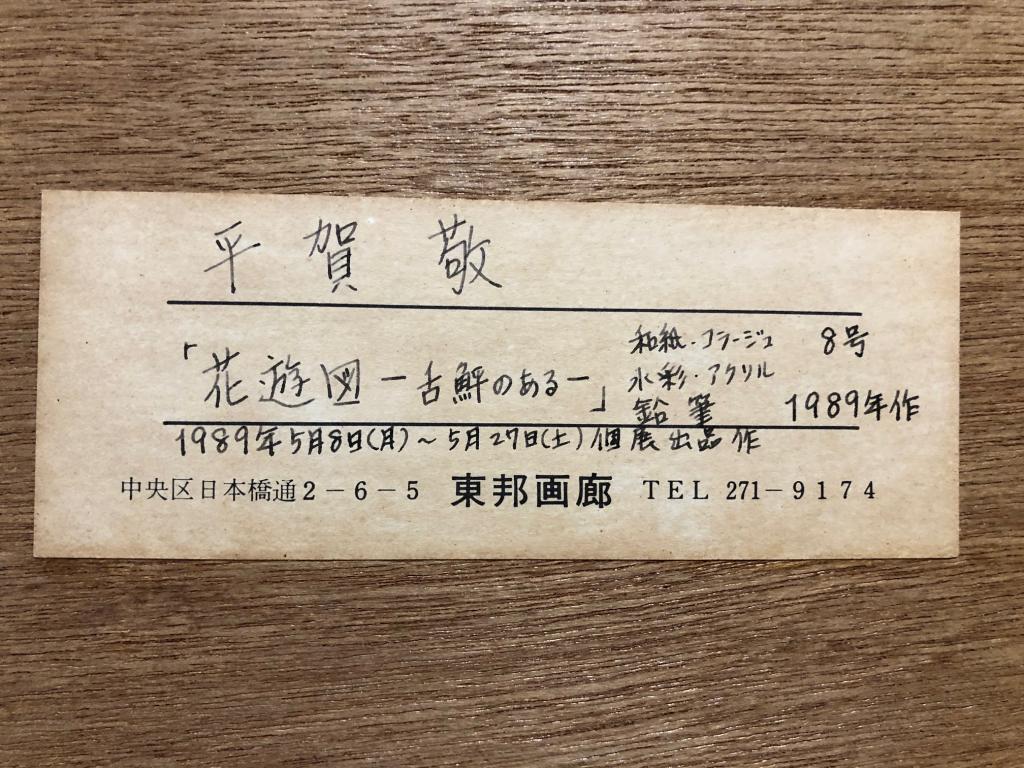 平賀 敬
「花遊図 ー舌鮃のあるー」
和紙・コラージュ 8号
水彩・アクリル
鉛筆 1989年作
1989年5月8日(月)～5月27日(土)個展出品作
中央区日本橋通2－6－5 東邦画廊 TEL 271－9174